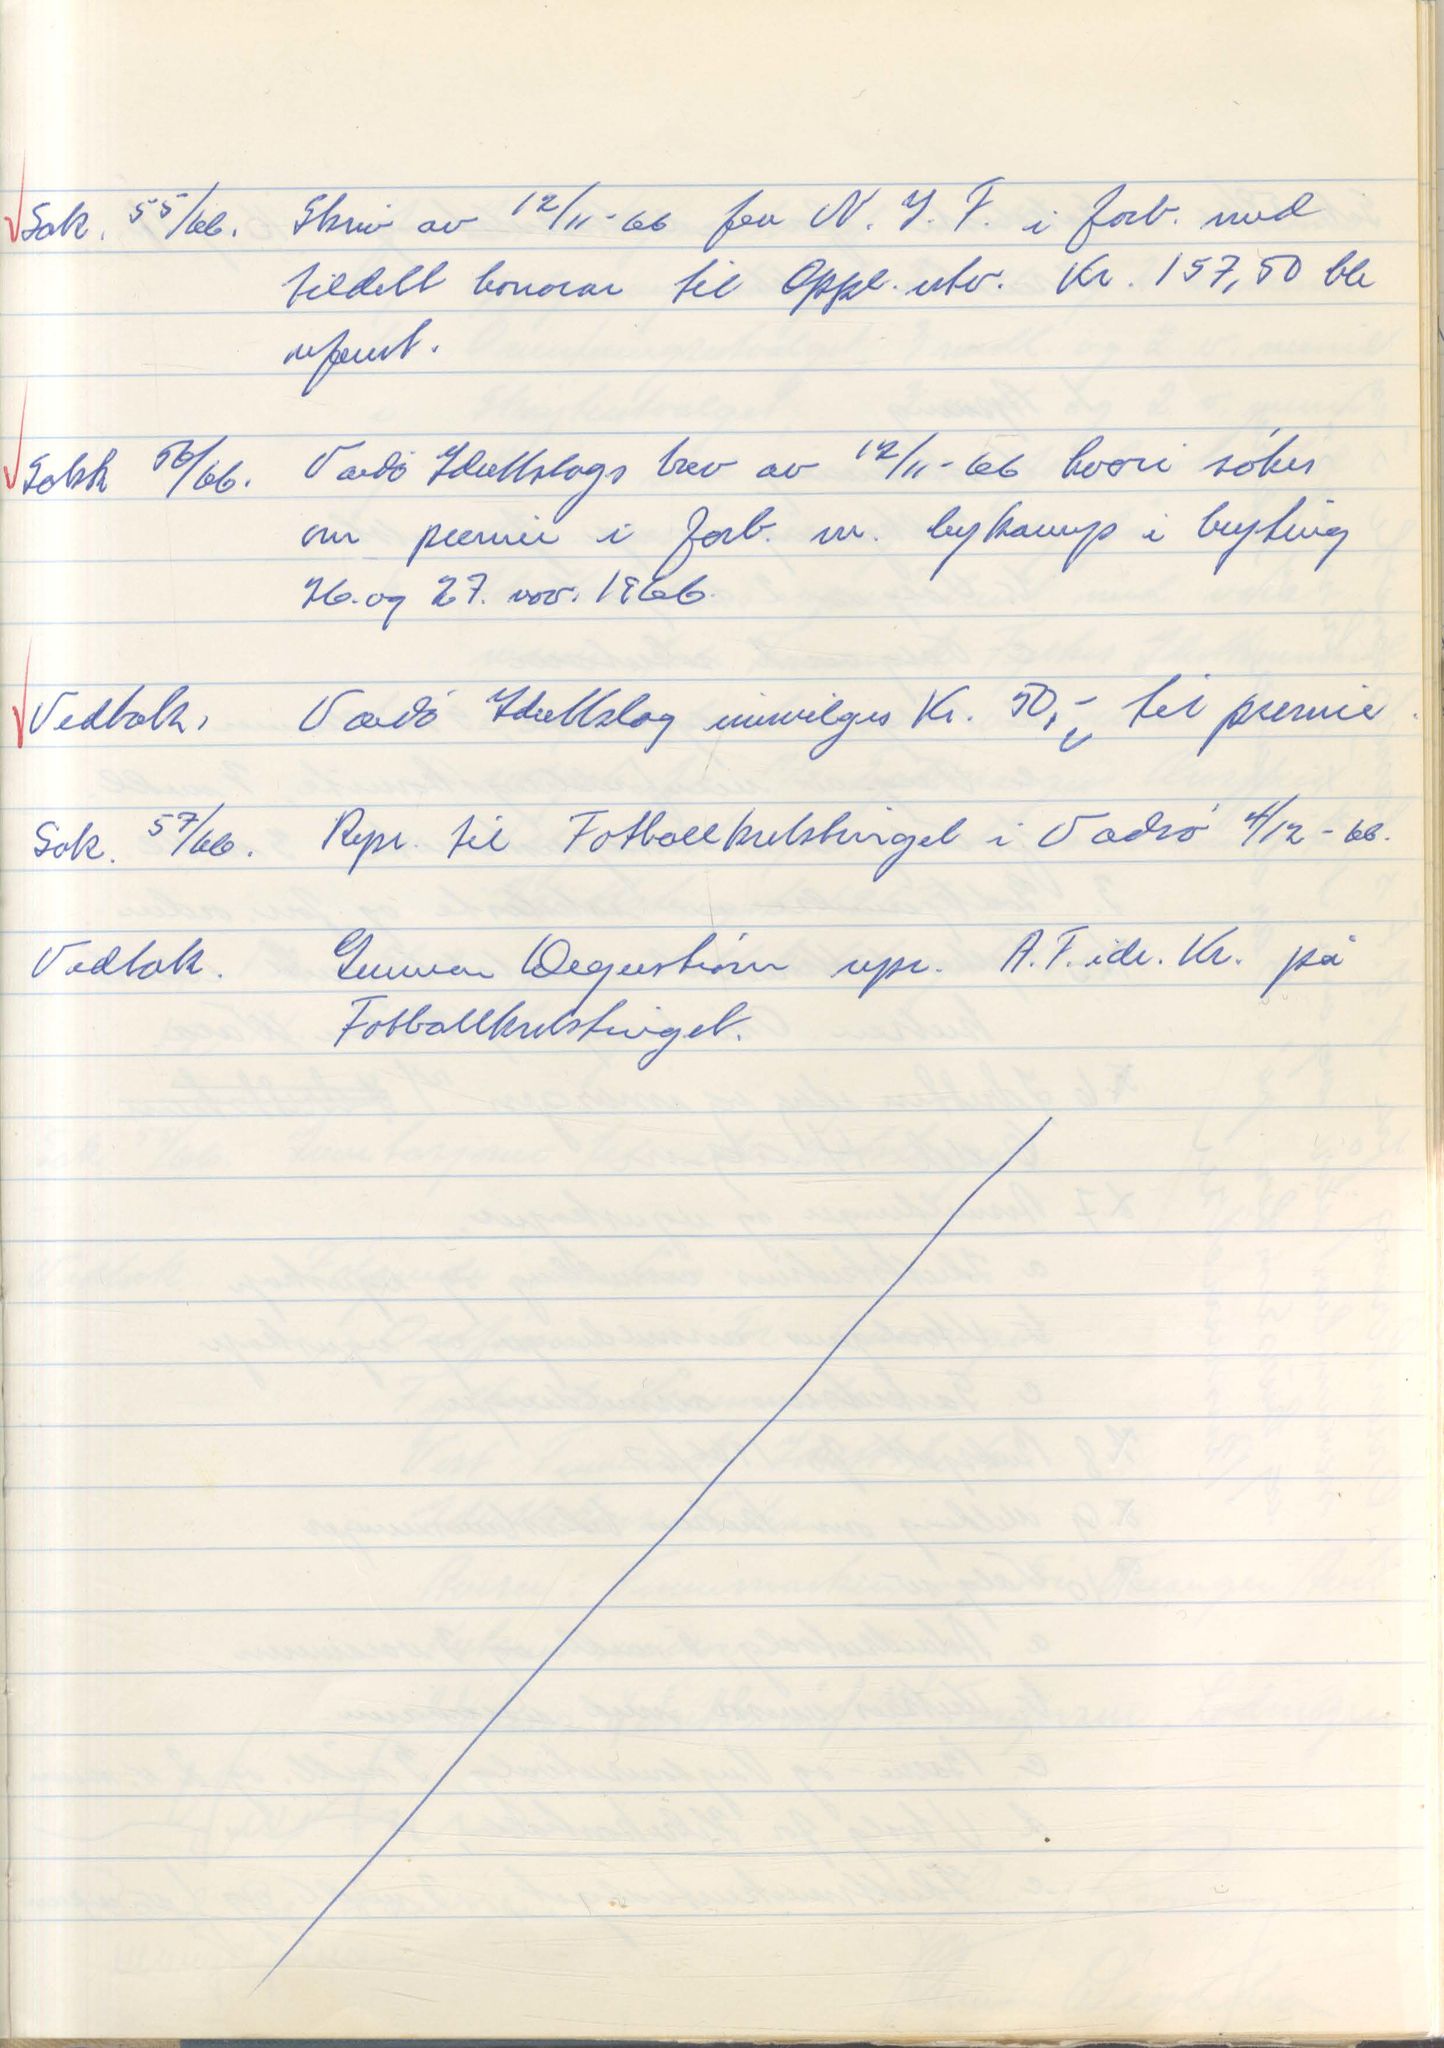 Sak. 55/66. Skriv av 12/11-66 fra N. I. F. i forb. med
tildelt honorar til Oppl. utv. Kr. 157,50 ble
referert.
Sakk 56/66. Vardö Idrettslags brev av 12/11-66 hvori söker
om premie i forb. m. bykamp i bryting
26. og 27. nov. 1966.
Vedtak. Vardö Idrettslag innvilges Kr. 50,- til premie.
Sak. 57/66. Repr. til Fotballkretstinget i Vadsö 4/12-66.
Vedtak. Gunnar repr. A.F.idr.Kr. på
Fotballkretstinget.